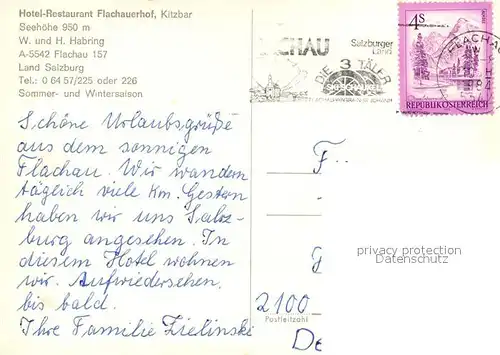 Hotel-Restaurant Flachauerhof, Kitzbar
Seehöhe 950 m
W. und H. Habring
A-5542 Flachau 157
Land Salzburg
Tel.: 0 64 57/225 oder 226
Sommer- und Wintersaison
Schöne Urlaubsgrüße
aus dem sonnigen
Flachau. Wir wandern
täglich viele Km. Gestern
haben wir uns Salz-
burg angesehen. In
diesem Hotel wohnen
wir. Aufwiedersehen,
bis bald.
Ihre Familie Zielinski
ACHAU
Salzburger
Land
DIE 3 TÄLER
4s
FLACHAU
REPUBLIK ÖSTERREICH
F
privacy protection
Datenschutz
2100
Postleitzahl
De